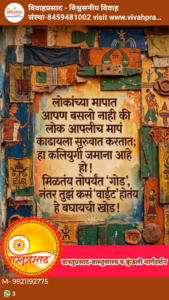 विवाहप्रसाद - विश्वसनीय विवाह
संस्था-8459481002 visit www.vivahpra...
लोकांच्या मापात
आपण बसलो नाही की
लोक आपलीच मापं
काढायला सुरुवात करतात;
हा कलियुगी जमाना आहे
हो !
मिळतंय तोपर्यंत 'गोड',
नंतर तुझं कसं 'वाईट' होतंय
हे बघायची खोड !
वास्तुप्रसाद
वास्तुप्रसाद-वास्तुशास्त्र व कुंडली मार्गदर्शन
M- 9921192775
3